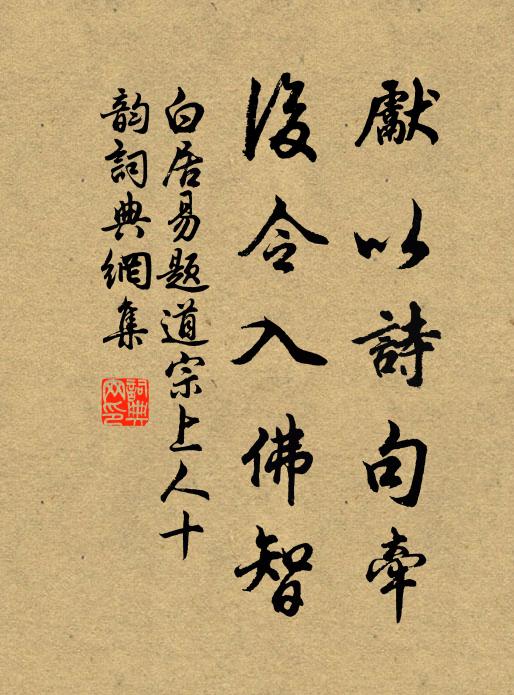 獻以詩句牽
後令入佛智
白居易題道宗上人十
韵詞典網集
詞典
网印